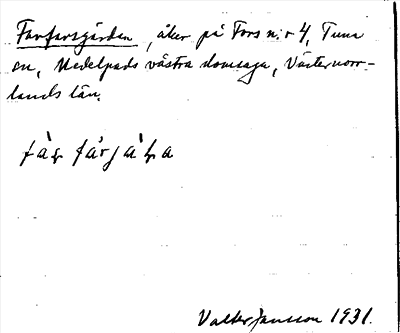 Farfarsgården, åker på Fors n:r 4, Tuna
sn, Medelpads västra domsaga, Västernorr-
lands län.
Valter Jansson 1931.